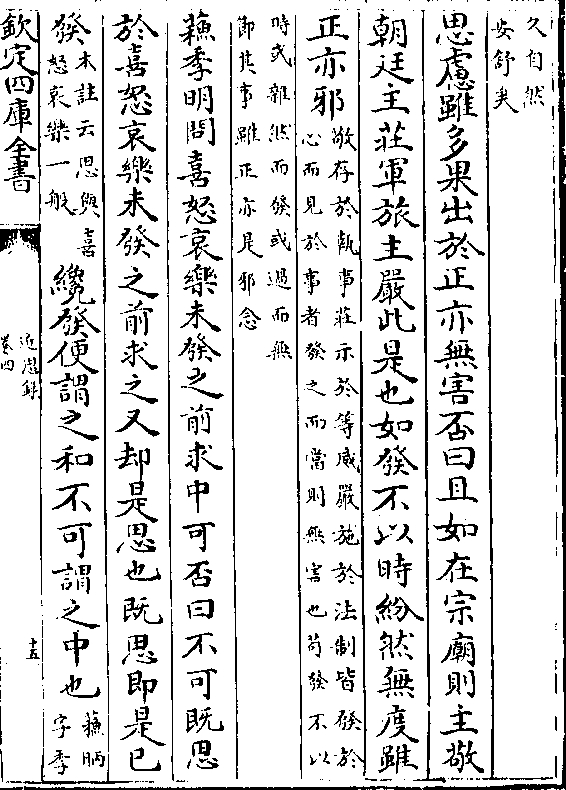 久自然
安舒矣
思慮雖多果出於正亦無害否曰且如在宗廟則主敬
朝廷主莊軍旅主嚴此是也如發不以時紛然無度雖
正亦邪
敬存於執事莊示於等威嚴施於法制皆發於
心而見於事者發之而當則無害也茍發不以
時或雜然而發或過而無
節其事雖正亦是邪念
蘇季明問喜怒哀樂未發之前求中可否曰不可既思
於喜怒哀樂未發之前求之又却是思也既思即是已
發
本註云思與喜
怒哀樂一般
纔發便謂之和不可謂之中也
蘇昞
字季
欽定四庫全書
近思錄
卷四
十五